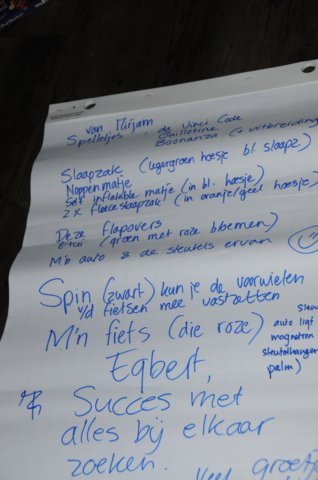 van Mirjam
Spelletjes, da Vinci Code
Guillotine
Boonanza (+ uitbreiding
Slaapzak (legergroen hoesje bl. slaapz.)
Noppenmatje
Self inflatable matje (in bl. hoesje)
2 x fleeceslaapzak (in oranje/geel hoesje)
Deze flapovers
Etui (groen met roze bloemen)
M'n auto & de sleutels ervan
Spin (zwart) kun je de voorwielen
v/d fietsen mee vastzetten
M'n fiets (die roze)
auto ligt
magnetron
sleutelhanger
palm)
Egbert,
Succes met
alles bij elkaar
zoeken.
Veel groetj